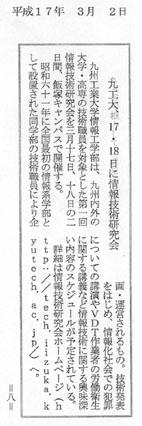 平成17年 3月 2日
九工大 17・18日に情報技術研究会
九州工業大学情報工学部は、九州内外の
大学・高専の技術職員を対象とした第一回
情報技術研究会を三月十七日、十八日の二
日間、飯塚キャンパスで開催する。
昭和六十一年に全国最初の情報系学部と
して設置された同学部の技術職員により企
画・運営されるもの。技術発表
をはじめ、情報化社会での犯罪
についての講演やVDT作業者の労働衛生
に関する講義など情報技術に関する興味深
い内容のスケジュールが予定されている。
詳細は情報技術研究会ホームページ（h
ttp://tech.iizuka.k
yutech.ac.jp/）へ。
=八=